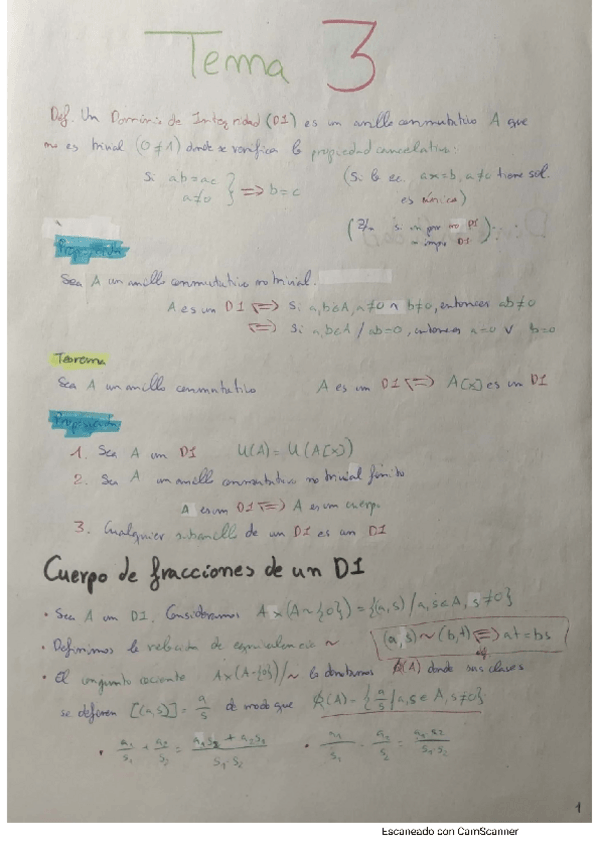 Tema 3
Def. Un Dominio de Integridad (DI) es un anillo conmutativo A que
no es trivial (0 ≠ 1) donde se verifica la propiedad cancelativa:
Si ab = ac
a ≠ 0 } ⟹ b = c
(Si la ec. ax = b, a ≠ 0 tiene sol.
es única)
si n par no DI
impar DI
Proposición
Sea A un anillo conmutativo no trivial.
A es un DI ⟺ Si a, b ∈ A, a ≠ 0 ∧ b ≠ 0, entonces ab ≠ 0
⟺ Si a, b ∈ A / ab = 0, entonces a = 0 ∨ b = 0
Teorema
Sea A un anillo conmutativo A es un DI ⟺ A[x] es un DI
Proposición
1. Sea A un DI U(A) = U(A[x])
2. Sea A un anillo conmutativo no trivial finito
A es un DI ⟺ A es un cuerpo
3. Cualquier subanillo de un DI es un DI
Cuerpo de fracciones de un DI
• Sea A un DI. Consideramos A × (A ~ {0}) = {(a, s) / a, s ∈ A, s ≠ 0}
• Definimos la relación de equivalencia ~ (a, s) ~ (b, t) ⟺ at = bs
• El conjunto cociente A × (A - {0}) / ~ lo denotamos Q(A) donde sus clases
se definen [(a, s)] = a/s de modo que Q(A) = {a/s / a, s ∈ A, s ≠ 0}
• a₁/s₁ + a₂/s₂ = (a₁s₂ + a₂s₁)/(s₁·s₂) • a₁/s₁ · a₂/s₂ =
1
Escaneado con CamScanner